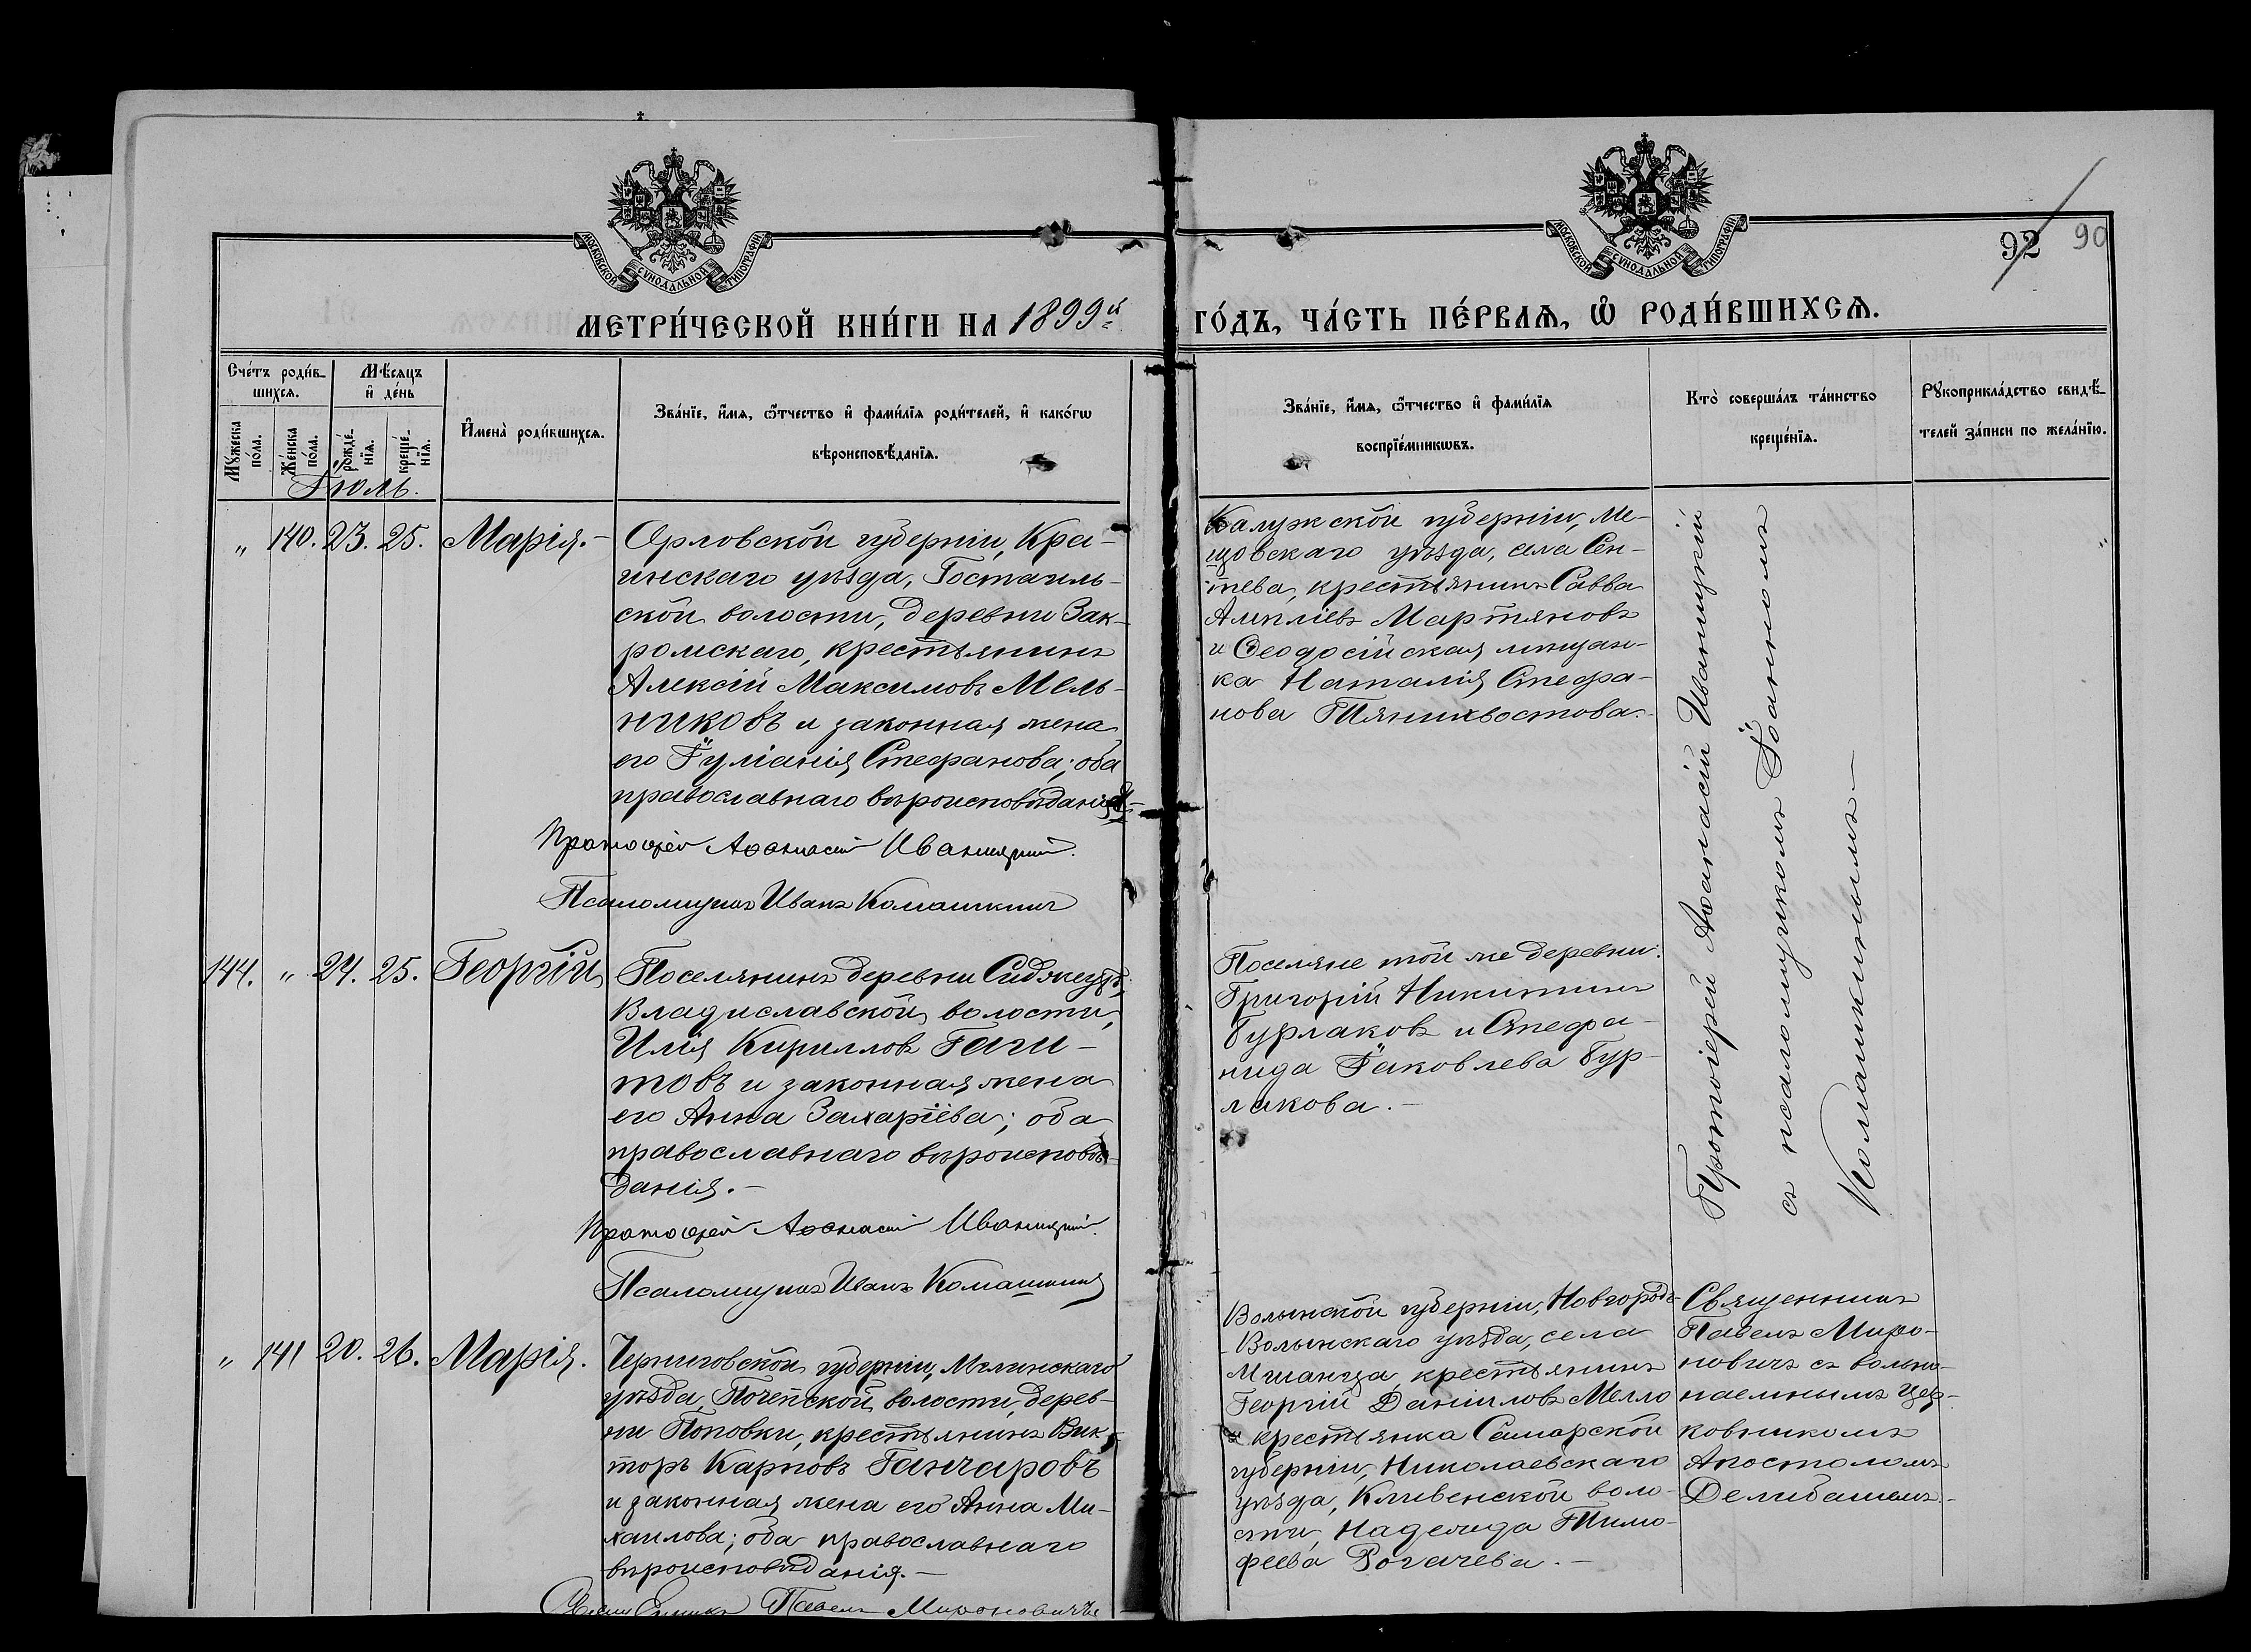 МОСКОВСКОЙ СѴНОДАЛЬНОЙ ТИПОГРАФІИ
МОСКОВСКОЙ СѴНОДАЛЬНОЙ ТИПОГРАФІИ
92 90
МЕТРИ́ЧЕСКОЙ КНИ́ГИ НА 1899й ГО́ДЪ, ЧА́СТЬ ПЕ́РВАѦ, Ѡ҆ РОДИ́ВШИХСѦ.
Сче́тъ роди́в-
шихсѧ.
Мѣ́сяцъ
и҆ де́нь
Мꙋ́жеска
по́ла.
Же́нска
по́ла.
рожде́-
нїѧ.
креще́-
нїѧ.
И҆мена̀ роди́вшихсѧ.
Зва́нїе, и҆́мѧ, ѻ҆́тчество и҆ фами́лїѧ роди́телей, и҆ како́гѡ
вѣроисповѣ́данїѧ.
Зва́нїе, и҆́мѧ, ѻ҆́тчество и҆ фами́лїѧ
воспрїе́мникѡвъ.
Кто̀ соверша́лъ та́инство
креще́нїѧ.
Рꙋкоприкла́дство свидѣ́-
телей за́писи по жела́нїю.
Іюль.
„ 140. 23. 25. Марія.-
Орловской губерніи, Кра-
инскаго уѣзда, Гостагиль-
ской волости, деревни Зак-
ромскаго, крестьянинъ
Алексій Максимовъ Мель-
никовъ и законная жена
его Іуліанія Стефанова; оба
православнаго вѣроисповѣданія.-
Протоіерей Аѳанасій Иваницкій.
Псаломщикъ Иванъ Комашкинъ
Калужской губерніи, Ме-
щовскаго уѣзда, села Сен-
тева, крестьянинъ Савва
Ампліевъ Мартяновъ
и Ѳеодосійская мѣщан-
ка Наталія Стефа-
нова Тянихвостова.-
Протоіерей Аѳанасій Иваницкій
съ псаломщикомъ Іоанномъ
Комашкинымъ.-
144. „ 24. 25. Георгій
Поселянинъ деревни Сиджеутъ,
Владиславской волости,
Илія Кирилловъ Гаги-
товъ и законная жена
его Анна Захаріева; оба
православнаго вѣроисповѣ-
данія.-
Протоіерей Аѳанасій Иваницкій.
Псаломщикъ Иванъ Комашкинъ
Поселяне той же деревни:
Григорій Никитинъ
Бурлаковъ и Стефа-
нида Іаковлева Бур-
лакова.-
„ 141 20. 26. Марія.
Черниговской губерніи, Мглинскаго
уѣзда, Почепской волости, дерев-
ни Поповки, крестьянинъ Вик-
торъ Карповъ Ганчаровъ
и законная жена его Анна Ми-
хаилова; оба православнаго
вѣроисповѣданія.-
Священникъ Павелъ Мироновичъ
Волынской губерніи, Новгородъ-
Волынскаго уѣзда, села
Мшанца, крестьянинъ
Георгій Даніиловъ Мелло
и крестьянка Самарской
губерніи, Николаевскаго
уѣзда, Кливенской воло-
сти, Надежда Тимо-
феева Рогачева.-
Священникъ
Павелъ Миро-
новичъ съ вольно-
наемнымъ цер-
ковникомъ
Апостоломъ
Делибашемъ.-